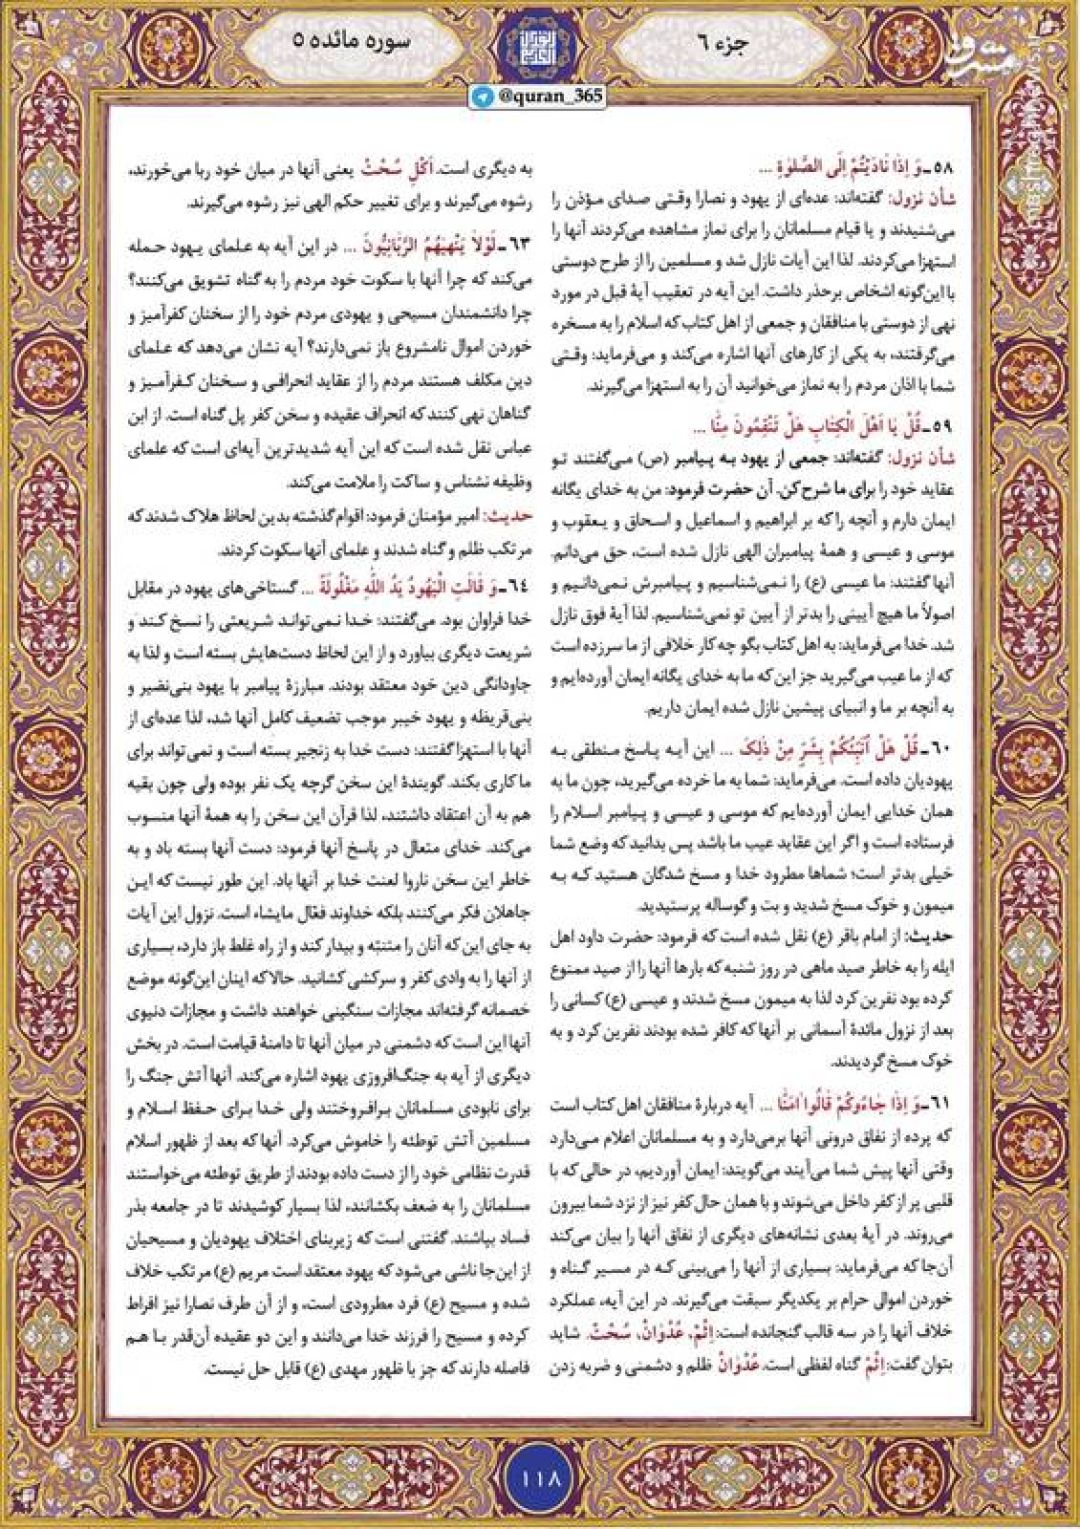 جزء ۶
سوره مائده ۵
@quran_365
۵۸ـ وَ اِذٰا نٰادَيْتُمْ اِلَى الصَّلوٰةِ ...
شأن نزول: گفته‌اند: عده‌ای از یهود و نصارا وقتی صدای مؤذن را
می‌شنیدند و یا قیام مسلمانان را برای نماز مشاهده می‌کردند آنها را
استهزا می‌کردند. لذا این آیات نازل شد و مسلمین را از طرح دوستی
با این‌گونه اشخاص برحذر داشت. این آیه در تعقیب آیهٔ قبل در مورد
نهی از دوستی با منافقان و جمعی از اهل کتاب که اسلام را به مسخره
می‌گرفتند، به یکی از کارهای آنها اشاره می‌کند و می‌فرماید: وقتی
شما با اذان مردم را به نماز می‌خوانید آن را به استهزا می‌گیرند.
۵۹ـ قُلْ يٰا اَهْلَ الْكِتٰابِ هَلْ تَنْقِمُونَ مِنّٰا ...
شأن نزول: گفته‌اند: جمعی از یهود به پیامبر (ص) می‌گفتند تو
عقاید خود را برای ما شرح کن. آن حضرت فرمود: من به خدای یگانه
ایمان دارم و آنچه را که بر ابراهیم و اسماعیل و اسحاق و یعقوب و
موسی و عیسی و همهٔ پیامبران الهی نازل شده است، حق می‌دانم.
آنها گفتند: ما عیسی (ع) را نمی‌شناسیم و پیامبرش نمی‌دانیم و
اصولاً ما هیچ آیینی را بدتر از آیین تو نمی‌شناسیم. لذا آیهٔ فوق نازل
شد. خدا می‌فرماید: به اهل کتاب بگو چه کار خلافی از ما سرزده است
که از ما عیب می‌گیرید جز این‌که ما به خدای یگانه ایمان آورده‌ایم و
به آنچه بر ما و انبیای پیشین نازل شده ایمان داریم.
۶۰ـ قُلْ هَلْ اُنَبِّئُكُمْ بِشَرٍّ مِنْ ذٰلِكَ ... این آیه پاسخ منطقی به
یهودیان داده است. می‌فرماید: شما به ما خرده می‌گیرید، چون ما به
همان خدایی ایمان آورده‌ایم که موسی و عیسی و پیامبر اسلام را
فرستاده است و اگر این عقاید عیب ما باشد پس بدانید که وضع شما
خیلی بدتر است؛ شماها مطرود خدا و مسخ شدگان هستید که به
میمون و خوک مسخ شدید و بت و گوساله پرستیدید.
حدیث: از امام باقر (ع) نقل شده است که فرمود: حضرت داود اهل
ایله را به خاطر صید ماهی در روز شنبه که بارها آنها را از صید ممنوع
کرده بود نفرین کرد لذا به میمون مسخ شدند و عیسی (ع) کسانی را
بعد از نزول مائدهٔ آسمانی بر آنها که کافر شده بودند نفرین کرد و به
خوک مسخ گردیدند.
۶۱ـ وَ اِذٰا جٰاءُوكُمْ قٰالُوا اٰمَنّٰا ... آیه دربارهٔ منافقان اهل کتاب است
که پرده از نفاق درونی آنها برمی‌دارد و به مسلمانان اعلام می‌دارد
وقتی آنها پیش شما می‌آیند می‌گویند: ایمان آوردیم، در حالی که با
قلبی پر از کفر داخل می‌شوند و با همان حال کفر نیز از نزد شما بیرون
می‌روند. در آیهٔ بعدی نشانه‌های دیگری از نفاق آنها را بیان می‌کند
آن‌جا که می‌فرماید: بسیاری از آنها را می‌بینی که در مسیر گناه و
خوردن اموالی حرام بر یکدیگر سبقت می‌گیرند. در این آیه، عملکرد
خلاف آنها را در سه قالب گنجانده است: اِثْمْ، عُدْوٰانْ، سُحْتْ. شاید
بتوان گفت: اِثْمْ گناه لفظی است. عُدْوٰانْ ظلم و دشمنی و ضربه زدن
به دیگری است. اَكْلِ سُحْتْ یعنی آنها در میان خود ربا می‌خورند،
رشوه می‌گیرند و برای تغییر حکم الهی نیز رشوه می‌گیرند.
۶۳ـ لَوْلاٰ يَنْهٰيهُمُ الرَّبّٰانِيُّونَ ... در این آیه به علمای یهود حمله
می‌کند که چرا آنها با سکوت خود مردم را به گناه تشویق می‌کنند؟
چرا دانشمندان مسیحی و یهودی مردم خود را از سخنان کفرآمیز و
خوردن اموال نامشروع باز نمی‌دارند؟ آیه نشان می‌دهد که علمای
دین مکلف هستند مردم را از عقاید انحرافی و سخنان کفرآمیز و
گناهان نهی کنند که انحراف عقیده و سخن کفر پل گناه است. از ابن
عباس نقل شده است که این آیه شدیدترین آیه‌ای است که علمای
وظیفه نشناس و ساکت را ملامت می‌کند.
حدیث: امیر مؤمنان فرمود: اقوام گذشته بدین لحاظ هلاک شدند که
مرتکب ظلم و گناه شدند و علمای آنها سکوت کردند.
۶۴ـ وَ قٰالَتِ الْيَهُودُ يَدُ اللّٰهِ مَغْلُولَةٌ ... گستاخی‌های یهود در مقابل
خدا فراوان بود. می‌گفتند: خدا نمی‌تواند شریعتی را نسخ کند و
شریعت دیگری بیاورد و از این لحاظ دست‌هایش بسته است و لذا به
جاودانگی دین خود معتقد بودند. مبارزهٔ پیامبر با یهود بنی‌نضیر و
بنی‌قریظه و یهود خیبر موجب تضعیف کامل آنها شد، لذا عده‌ای از
آنها با استهزا گفتند: دست خدا به زنجیر بسته است و نمی‌تواند برای
ما کاری بکند. گویندهٔ این سخن گرچه یک نفر بوده ولی چون بقیه
هم به آن اعتقاد داشتند، لذا قرآن این سخن را به همهٔ آنها منسوب
می‌کند. خدای متعال در پاسخ آنها فرمود: دست آنها بسته باد و به
خاطر این سخن ناروا لعنت خدا بر آنها باد. این طور نیست که این
جاهلان فکر می‌کنند بلکه خداوند فعّال مایشاء است. نزول این آیات
به جای این‌که آنان را متنبّه و بیدار کند و از راه غلط باز دارد، بسیاری
از آنها را به وادی کفر و سرکشی کشانید. حالا که اینان این‌گونه موضع
خصمانه گرفته‌اند مجازات سنگینی خواهند داشت و مجازات دنیوی
آنها این است که دشمنی در میان آنها تا دامنهٔ قیامت است. در بخش
دیگری از آیه به جنگ‌افروزی یهود اشاره می‌کند. آنها آتش جنگ را
برای نابودی مسلمانان برافروختند ولی خدا برای حفظ اسلام و
مسلمین آتش توطئه را خاموش می‌کرد. آنها که بعد از ظهور اسلام
قدرت نظامی خود را از دست داده بودند از طریق توطئه می‌خواستند
مسلمانان را به ضعف بکشانند، لذا بسیار کوشیدند تا در جامعه بذر
فساد بپاشند. گفتنی است که زیربنای اختلاف یهودیان و مسیحیان
از این‌جا ناشی می‌شود که یهود معتقد است مریم (ع) مرتکب خلاف
شده و مسیح (ع) فرد مطرودی است، و از آن طرف نصارا نیز افراط
کرده و مسیح را فرزند خدا می‌دانند و این دو عقیده آن‌قدر با هم
فاصله دارند که جز با ظهور مهدی (ع) قابل حل نیست.
۱۱۸